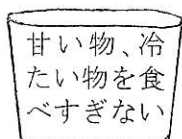 甘い物、冷
たい物を食
べすぎない